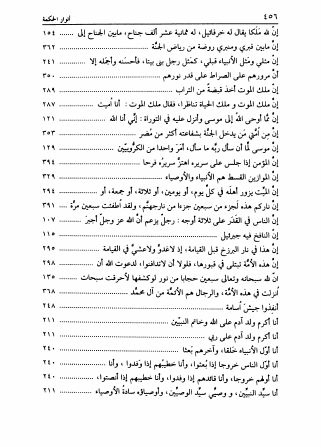 ٤٥٦ أنوار الحكمة
إنّ لله ملكا يقال له خرقائيل، له ثمانية عشر ألف جناح، مابين الجناح إلى ... ١٥٤
إنّ مابين قبري ومنبري روضة من رياض الجنّة ... ٣٦٢
إنّ مثلي ومثل الأنبياء قبلي، كمثل رجل بنى بيتا، فأحسنه وأجمله إلا ... ٢٤١
إنّ مرورهم على الصراط على قدر نورهم ... ٣٥٠
إنّ ملك الموت أخذ قبضة من التراب ... ٢٨٩
إنّ ملك الموت و ملك الحياة تناظرا، فقال ملك الموت: أنا أميت ... ٢٨٧
إنّ ممّا أوحى الله إلى موسى وأنزل عليه في التوراة: إنّي أنا الله ... ١٢١
إنّ من أمّتي من يدخل الجنّة بشفاعته أكثر من مضر ... ٣٥٣
إنّ موسى لمّا أن سأل ربّه ما سأل، أمر واحدا من الكروبيّين ... ١٢٩
إنّ المؤمن إذا جلس على سريره اهتزّ سريره فرحا ... ٣٩٤
إنّ الموازين القسط هم الأنبياء والأوصياء ... ٣٢٩
إنّ الميّت يزور أهله في كلّ يوم، أو يومين، أو ثلاثة، أو جمعة، أو ... ٢٩٤
إنّ ناركم هذه لجزء من سبعين جزءا من نار جهنّم، ولقد أطفئت سبعين مرّة ... ٣٩١
إنّ الناس في القدر على ثلاثة أوجه: رجل يزعم أنّ الله عز وجل أجبر ... ١٠٧
إنّ النافخ فيه جبرئيل ... ١١٥
إنّ هذا في نار البرزخ قبل القيامة، إذ لاغدوّ ولاعشيّ في القيامة ... ٢٩٠
إنّ هذه الأمّة تبتلى في قبورها، فلولا أن لاتدافنوا، لدعوت الله أن ... ٢٩٨
إنّ لله سبحانه وتعالى سبعين حجابا من نور لوكشفها لأحرقت سبحات ... ١٣٥
أنزلت في هذه الأمّة، والرجال هم الأئمّة من آل محمّد ... ٣٦٨
أنفذوا جيش أسامة ... ٢٤٨
أنا أكرم ولد آدم على الله وخاتم النبيّين ... ٢١١
أنا أكرم ولد آدم على ربّي ... ٢١١
أنا أوّل الأنبياء خلقا، وآخرهم بعثا ... ٢٤٠
أنا أوّل الناس خروجا إذا بعثوا، وأنا خطيبهم إذا وفدوا، وأنا ... ٢٤٠
أنا أولهم خروجا، وأنا قائدهم إذا وفدوا، وأنا خطيبهم إذا أنصتوا، ... ٢٤٠
أنا سيّد النبيّين، و وصيّي سيّد الوصيّين، وأوصياؤه سادة الأوصياء ... ٢١١